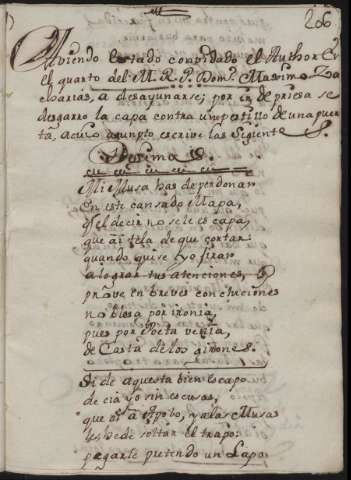 206
Habiendo estado convidado el Author En
el quarto del M. R. P. Domº. Maximo Za
charias, a desayunarse; por ir de priesa se
desgarro la capa contra un pestillo de una puer
ta, a cuio asumpto escrive las siguiente S.
Decima S.
Mi Musa has de perdonar
En este cansado Mapa,
qe. el decir no se le escapa,
que ai tela de que cortar:
quando quise yo tirar
a lograr tus atenciones,
no blesa por ironia,
pues por
de Casta de los giroNeS.
Si de aquesta bien escapo
decia yo sin escusas,
que a Apolo, y a las Musas
les de de soltar el trapo:
pegarle pretendo un Lapo